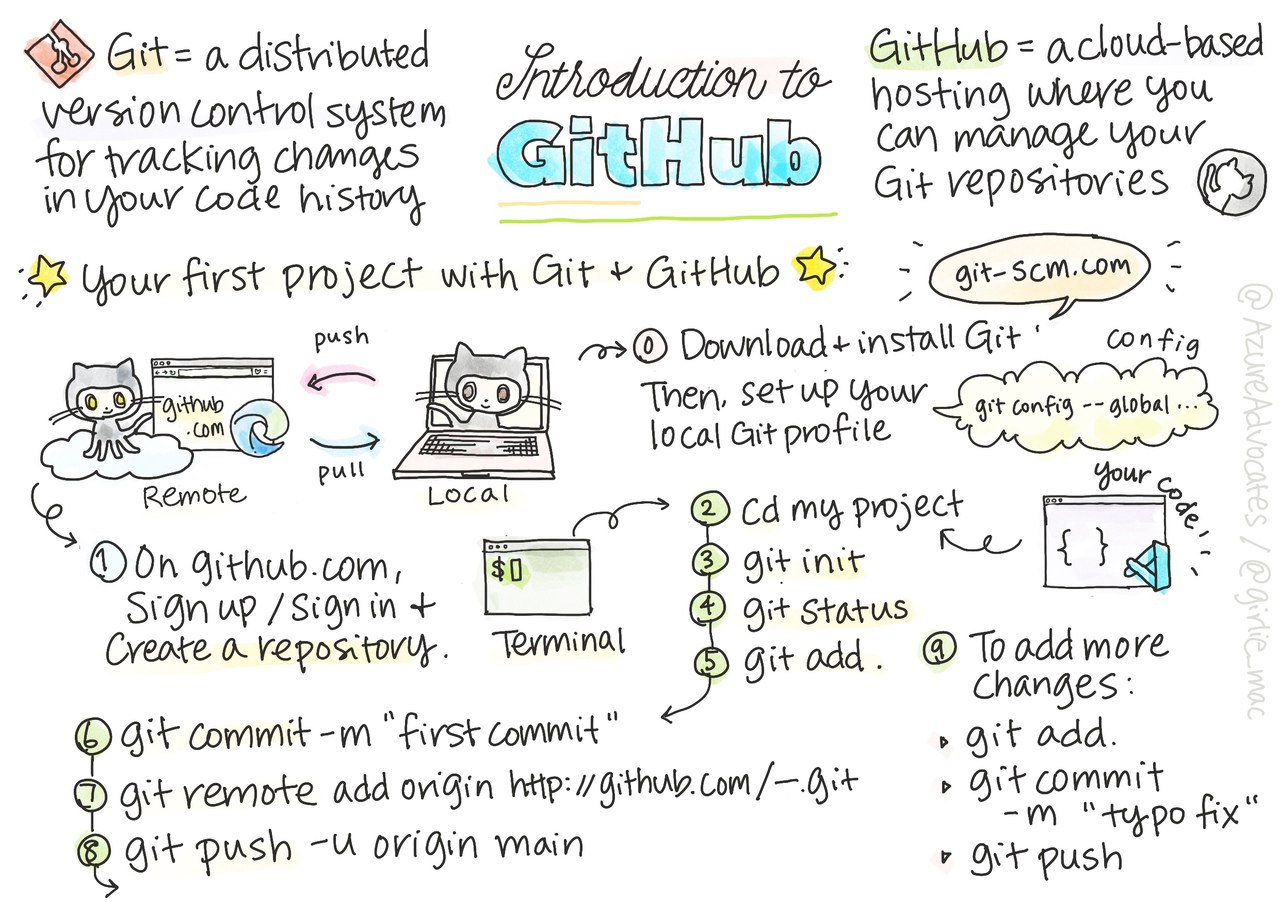 Git = a distributed
version control system
for tracking changes
in your code history
Introduction to
GitHub
GitHub = a cloud-based
hosting where you
can manage your
Git repositories
Your first project with Git + GitHub
git-scm.com
push
github
.com
pull
Remote
Local
0 Download + install Git
Then, set up your
local Git profile
config
git config --global ...
1 On github.com,
Sign up / Sign in +
Create a repository.
$
Terminal
your code
{ }
2 cd my project
3 git init
4 git status
5 git add .
6 git commit -m "first commit"
7 git remote add origin http://github.com/—.git
8 git push -u origin main
9 To add more
changes:
git add.
git commit
-m "typo fix"
git push
@AzureAdvocates / @girlie_mac